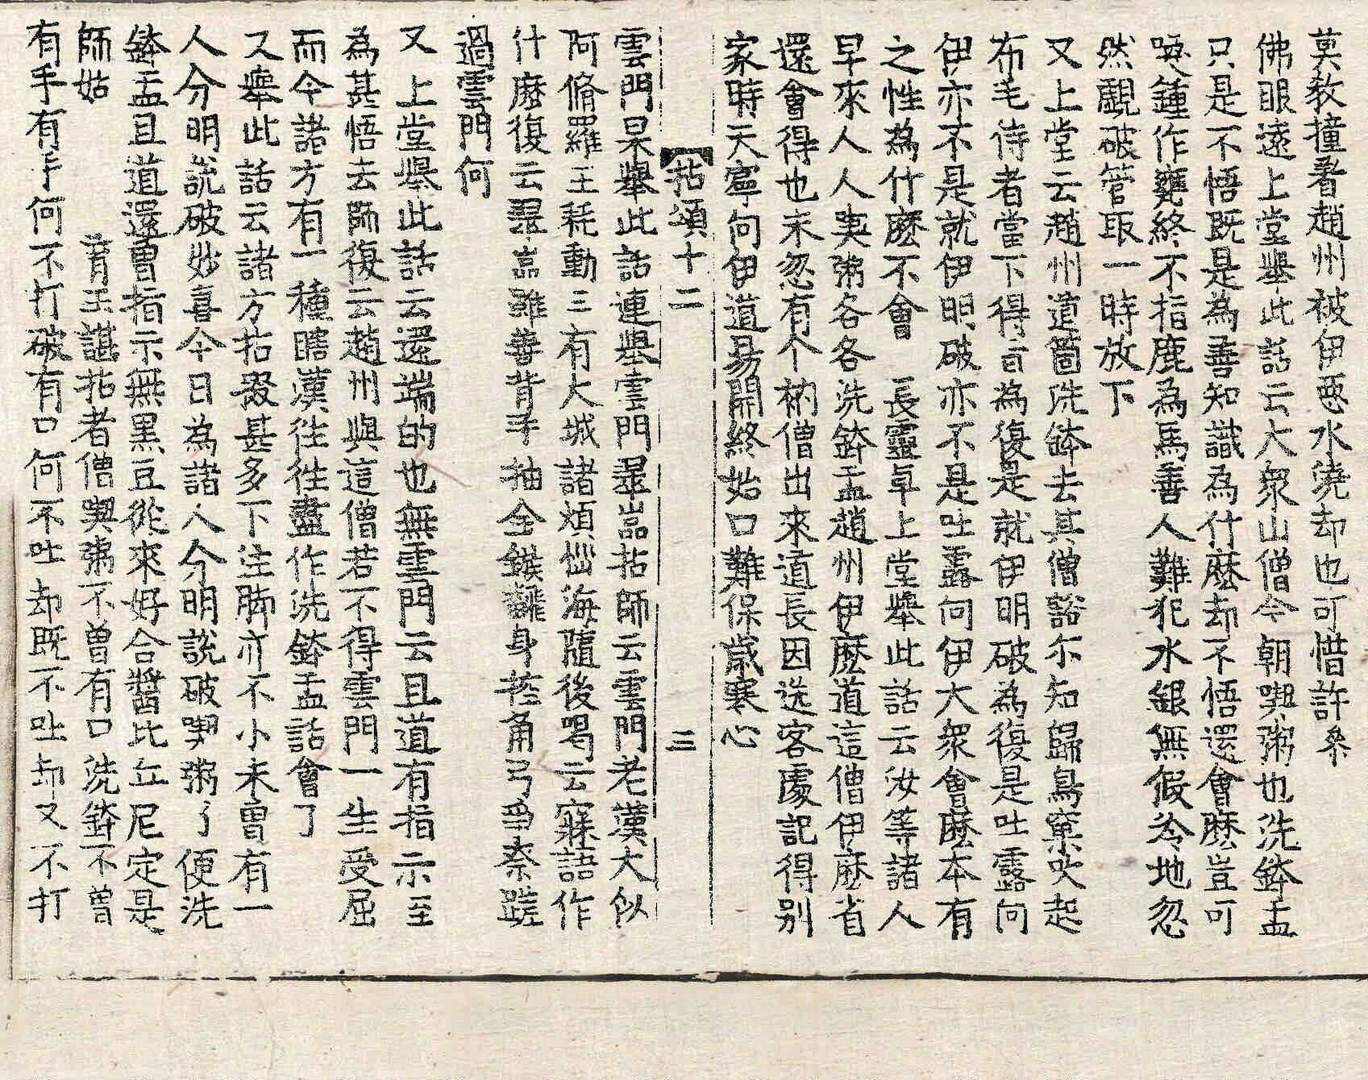 莫教撞着趙州被伊惡水澆却也可惜許叅
佛眼遠上堂舉此話云大衆山僧今朝喫粥也洗鉢盂
只是不悟旣是為善知識為什麽却不悟還會麽豈可
喚鍾作甕終不指鹿為馬善人難犯水銀無假冷地忽
然覷破管取一時放下
又上堂云趙州道箇洗鉢去其僧豁尒知歸鳥窠吹起
布毛侍者當下得旨為復是就伊明破為復是吐露向
伊亦不是就伊明破亦不是吐露向伊大衆會麽本有
之性為什麽不會 長靈卓上堂舉此話云汝等諸人
早來人人喫粥各各洗鉢盂趙州伊麽道這僧伊麽省
還會得也未忽有个衲僧出來道長因送客處記得别
家時天寧向伊道易開終始口難保歲寒心
拈頌十二 三
雲門杲舉此話連舉雲門  拈師云雲門老漢大似
阿脩羅王托動三有大城諸煩惱海隨後喝云寐語作
什麽復云  雖善背手抽金鏃 身控角弓爭柰蹉
過雲門何
又上堂舉此話云還端的也無雲門云且道有指示至
為甚悟去師復云趙州與這僧若不得雲門一生受屈
而今諸方有一種瞎漢往往盡作洗鉢盂話會了
又舉此話云諸方拈掇甚多下注脚亦不小未曾有一
人分明說破妙喜今日為諸人分明說破喫粥了便洗
鉢盂且道還曾指示無黑豆從來好合醬比丘尼定是
師姑 育王諶拈者僧喫粥不曾有口洗鉢不曾
有手有手何不打破有口何不吐却旣不吐却又不打